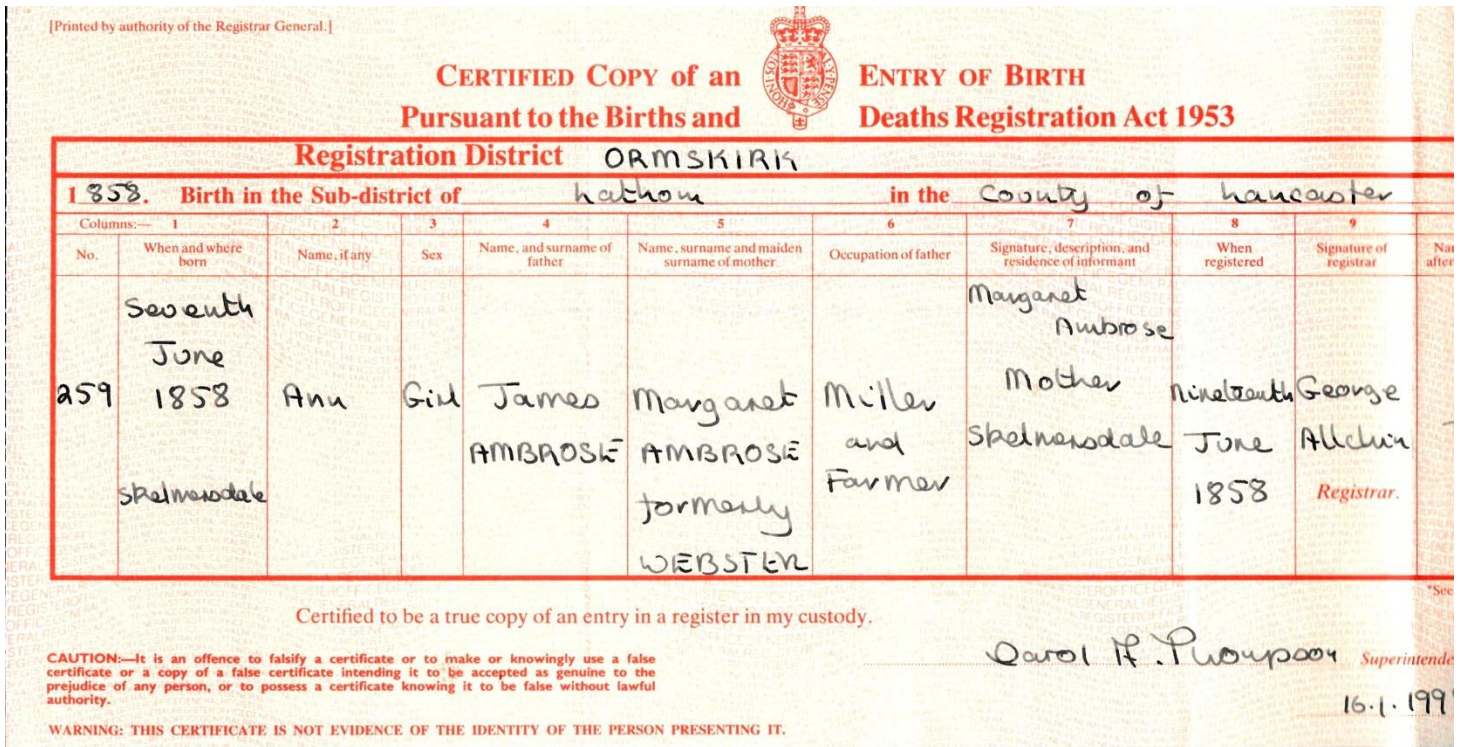 [Printed by authority of the Registrar General.]
CERTIFIED COPY of an ENTRY OF BIRTH
Pursuant to the Births and Deaths Registration Act 1953
Registration District ORMSKIRK
1 858. Birth in the Sub-district of Lathom in the County of Lancaster
Columns:— 1 2 3 4 5 6 7 8 9
No. When and where born Name, if any Sex Name, and surname of father Name, surname and maiden surname of mother Occupation of father Signature, description, and residence of informant When registered Signature of registrar
259
Seventh
June
1858
Skelmersdale
Ann
Girl
James
AMBROSE
Margaret
AMBROSE
formerly
WEBSTER
Miller
and
Farmer
Margaret
Ambrose
Mother
Skelmersdale
Nineteenth
June
1858
George
Allchin
Registrar.
*See
Certified to be a true copy of an entry in a register in my custody.
CAUTION:—It is an offence to falsify a certificate or to make or knowingly use a false
certificate or a copy of a false certificate intending it to be accepted as genuine to the
prejudice of any person, or to possess a certificate knowing it to be false without lawful
authority.
Carol A. Thompson Superintende
16.1.199
WARNING: THIS CERTIFICATE IS NOT EVIDENCE OF THE IDENTITY OF THE PERSON PRESENTING IT.